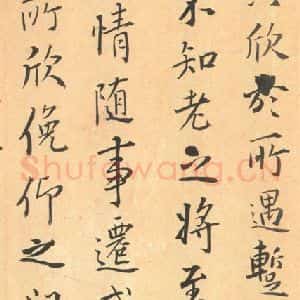 欣於所遇蹔
不知老之將至
情随事遷感
所欣俛仰之
Shufawang.CN